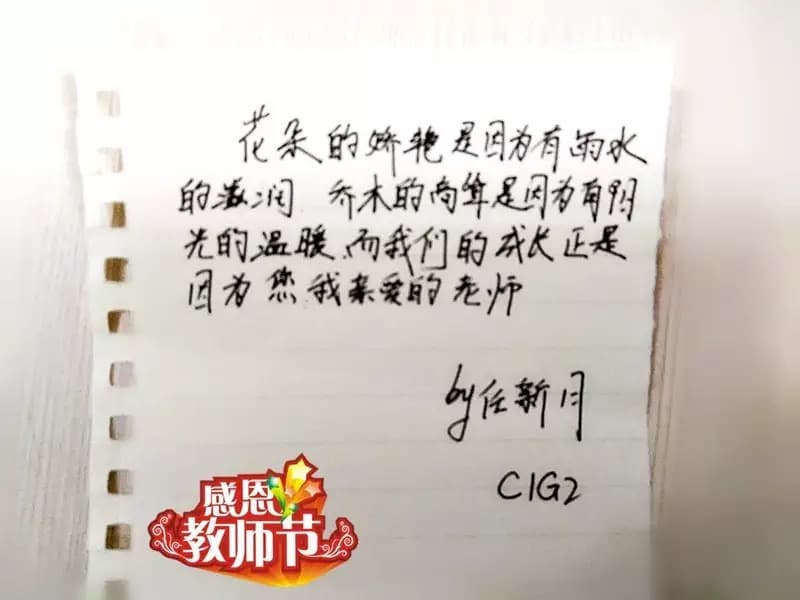 花朵的娇艳是因为有雨水
的滋润 乔木的高耸是因为有阳
光的温暖,而我们的成长正是
因为您,我亲爱的老师
by任新月
C1G2
感恩
教师节